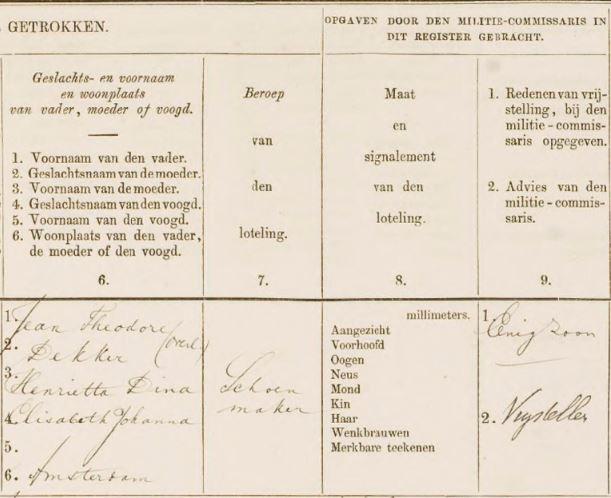 GETROKKEN.
OPGAVEN DOOR DEN MILITIE-COMMISSARIS IN
DIT REGISTER GEBRACHT.
Geslachts- en voornaam
en woonplaats
van vader, moeder of voogd.
1. Voornaam van den vader.
2. Geslachtsnaam van de moeder.
3. Voornaam van de moeder.
4. Geslachtsnaam van den voogd.
5. Voornaam van den voogd.
6. Woonplaats van den vader,
de moeder of den voogd.
6.
Beroep
van
den
loteling.
7.
Maat
en
signalement
van den
loteling.
8.
1. Redenen van vrij-
stelling, bij den
militie-commis-
saris opgegeven.
2. Advies van den
militie-commis-
saris.
9.
1. Jean Theodore (overl.)
2. Dekker
3. Henrietta Dina
4. Elisabeth Johanna
5.
6. Amsterdam
Schoen
maker
millimeters.
Aangezicht
Voorhoofd
Oogen
Neus
Mond
Kin
Haar
Wenkbrauwen
Merkbare teekenen
1. Enig zoon
2. Vrystellen